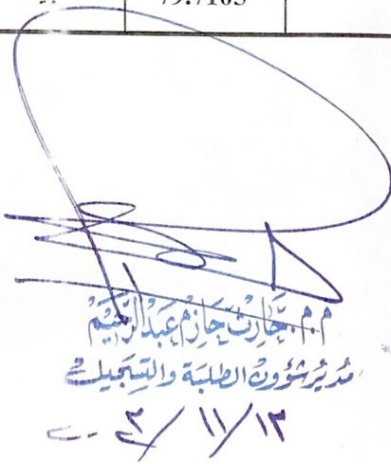 79.7103
م.م. حارث حازم عبدالرحيم
مدير شؤون الطلبة والتسجيل
١٣/١١/